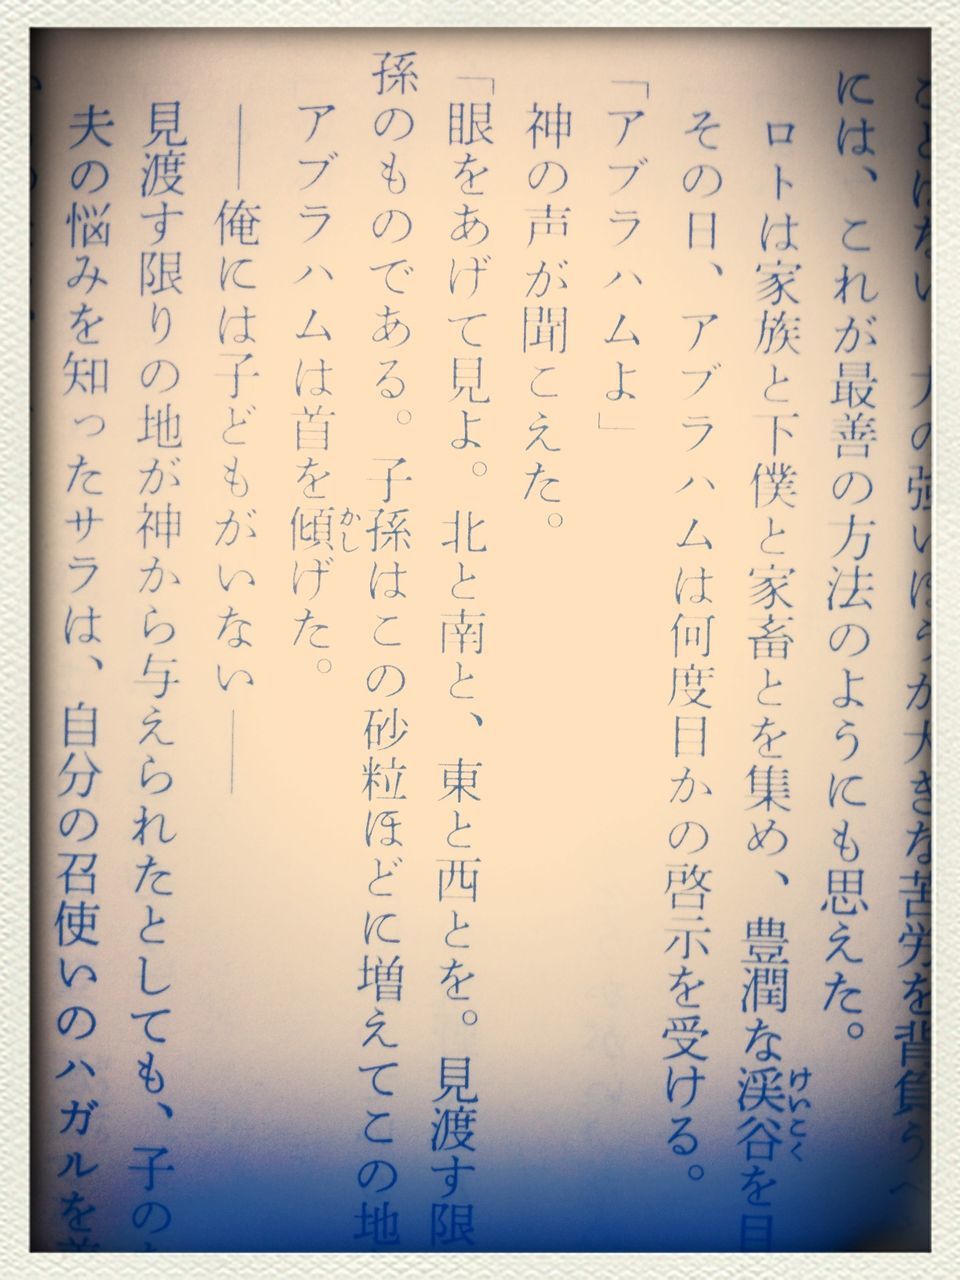 ことはない。力の強いほうが大きな苦労を背負う
には、これが最善の方法のようにも思えた。
ロトは家族と下僕と家畜とを集め、豊潤な渓谷を目
その日、アブラハムは何度目かの啓示を受ける。
「アブラハムよ」
神の声が聞こえた。
「眼をあげて見よ。北と南と、東と西とを。見渡す限
孫のものである。子孫はこの砂粒ほどに増えてこの地
アブラハムは首を傾げた。
――俺には子どもがいない――
見渡す限りの地が神から与えられたとしても、子の
夫の悩みを知ったサラは、自分の召使いのハガルを